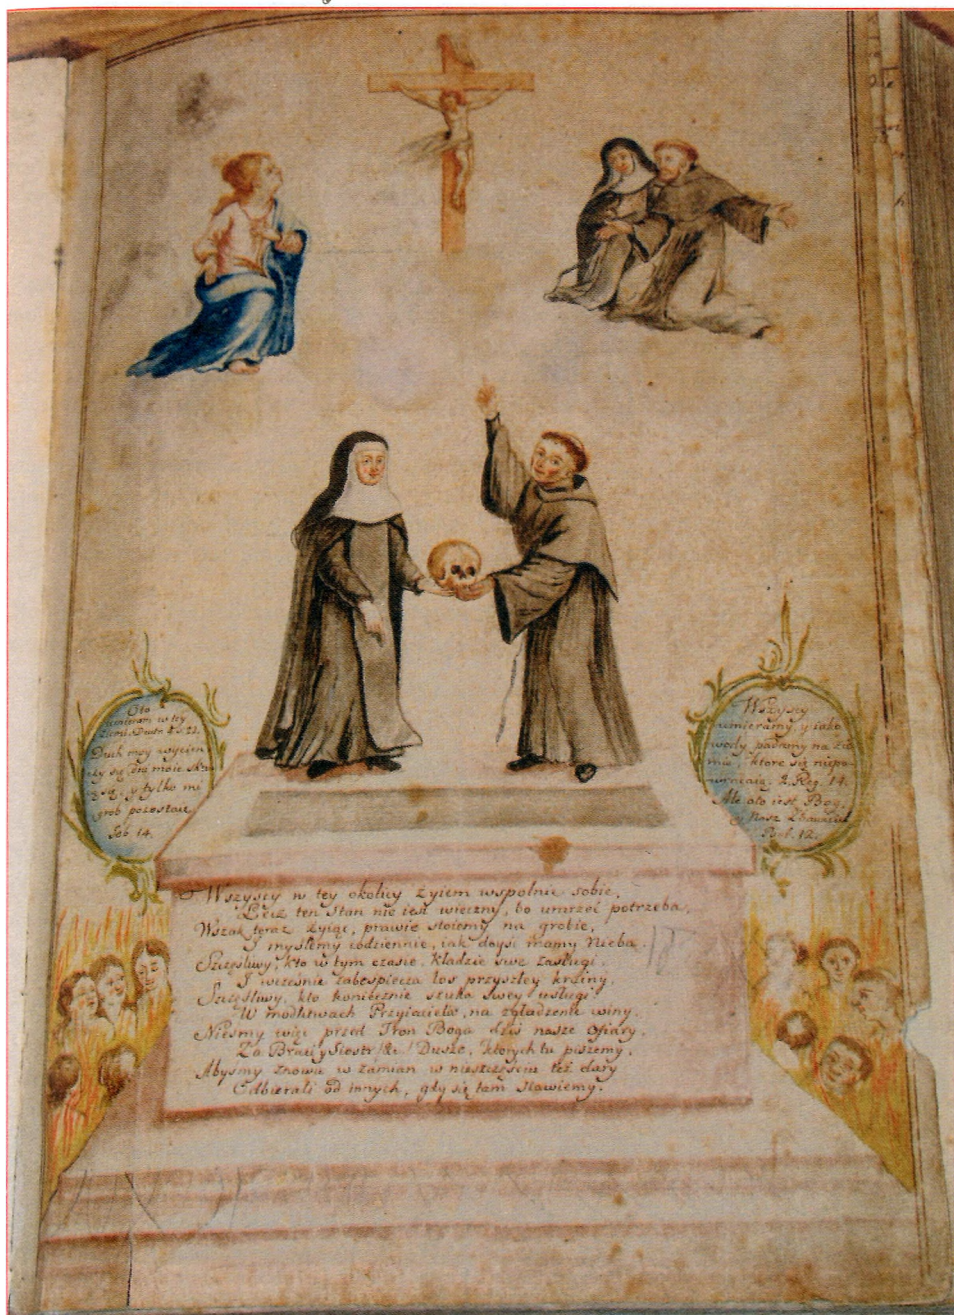 Oto
umieram w tey
Ziemi. Deut. 4. v. 22.
Duch moy wycien
czy się, dni moie skro
cą się, y tylko mi
grob pozostaie
Job 14.
Wszyscy
umieramy, y iako
wody padamy na Zie
mię, ktore się niepo
wracaią. 2. Reg. 14.
Ale oto iest Bog
Nasz Zbawiciel
12.
Wszyscy w tey okolicy żyiem wspolnie sobie,
Lecz ten Stan nie iest wieczny, bo umrzeć potrzeba,
Wszak teraz żyiąc, prawie stoiemy na grobie,
I myslemy codziennie, iak doyśi mamy Nieba.
Szczęśliwy, kto w tym czasie, kładzie swe zasługi,
I wcześnie zabespiecza los przyszłey krainy,
Szczęśliwy, kto koniecznie szuka swey usługi
W modłitwach Przyiacieloẃ, na zgładzenie winy.
Nieśmy więc przed Tron Boga dziś nasze ofiary,
Za Braci y Siostr Dusze, ktorych tu piszemy,
Abyśmy znowu w zamian w nieszczęściu też dary
Odbierali od innych, gdy się tam stawiemy.